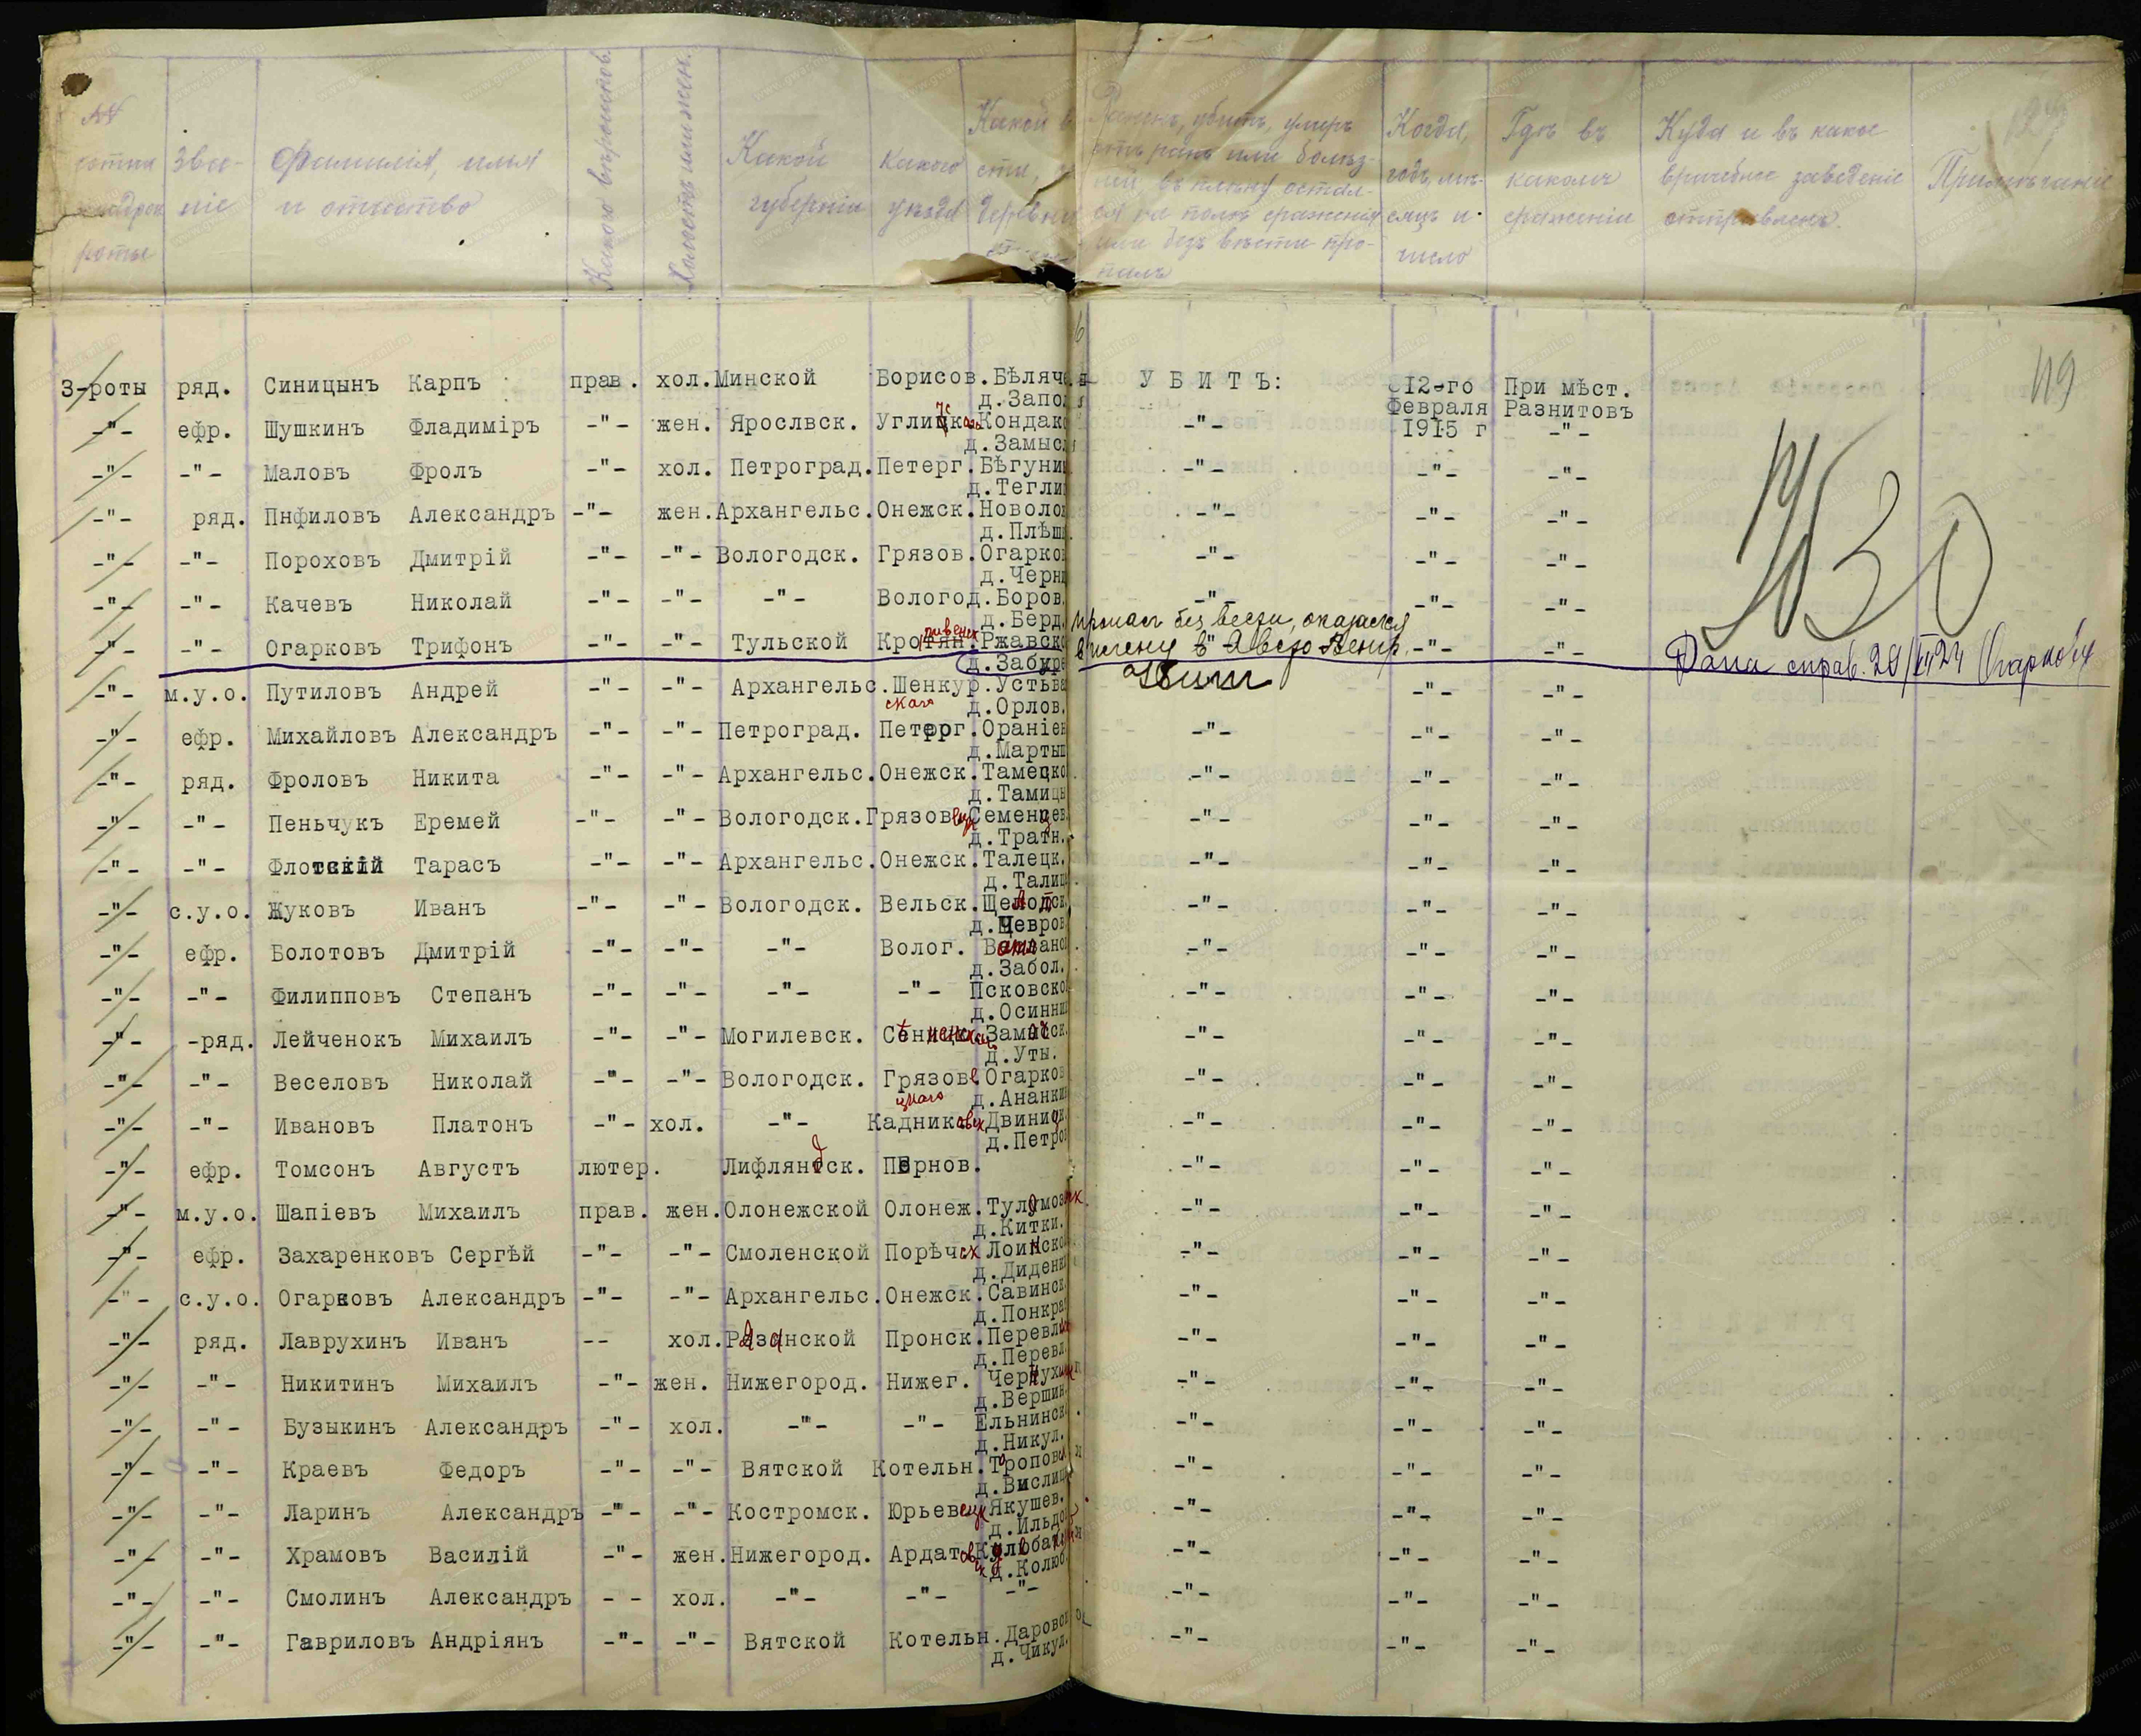 Званіе
фамилія, имя и отчество
Какого вѣроисповѣд.
Холостъ или жен.
Какой губерніи
Какого уѣзда
Раненъ, убитъ, умеръ
отъ ранъ или болѣз-
ней, въ плѣну, остал-
ся на полѣ сраженія
или безъ вѣсти про-
палъ
Когда,
годъ, мѣ-
сяцъ и
число
Гдѣ въ
какомъ
сраженіи
Куда и въ какое
врачебное заведеніе
отправленъ.
Примѣчаніе
119
3-роты ряд. Синицынъ Карпъ прав. хол. Минской Борисов. Бѣляче У Б И Т Ъ: 12-го При мѣст.
д.Запол Февраля Разнитовъ
-"- ефр. Шушкинъ Фладиміръ -"- жен. Ярослвск. Углицк Кондако -"- 1915 г -"-
д.Замысл
-"- -"- Маловъ Фролъ -"- хол. Петроград. Петерг. Бѣгуни -"- -"- -"-
д.Тегли
-"- ряд. Пнфиловъ Александръ -"- жен. Архангельс. Онежск. Новоло -"- -"- -"-
д.Плѣш
-"- -"- Пороховъ Дмитрій -"- -"- Вологодск. Грязов. Огарков -"- -"- -"-
д.Черн
-"- -"- Качевъ Николай -"- -"- -"- Вологод. Боров. -"- -"- -"-
д.Берд. пропал без вести, оказался
-"- -"- Огарковъ Трифонъ -"- -"- Тульской Кротян. Ржавско в плену в Австро-Венгр. -"- -"- Дана справ. 29/III 24
д.Забур Убит
-"- м.у.о. Путиловъ Андрей -"- -"- Архангельс. Шенкур. Устьва -"- -"-
скаго д.Орлов.
-"- ефр. Михайловъ Александръ -"- -"- Петроград. Петерг. Ораніен -"- -"- -"-
д.Марты
-"- ряд. Фроловъ Никита -"- -"- Архангельс. Онежск. Тамецко -"- -"- -"-
д.Тамицы
-"- -"- Пеньчукъ Еремей -"- -"- Вологодск. Грязов Семенцев -"- -"- -"-
д.Тратн.
-"- -"- Флотскій Тарасъ -"- -"- Архангельс. Онежск. Талецк. -"- -"- -"-
д.Талиц
-"- с.у.о. Жуковъ Иванъ -"- -"- Вологодск. Вельск. -"- -"- -"-
-"- ефр. Болотовъ Дмитрій -"- -"- -"- Волог. -"- -"- -"-
д.Забол.
-"- -"- Филипповъ Степанъ -"- -"- -"- -"- Псковско -"- -"- -"-
д.Осинни
-"- -ряд. Лейченокъ Михаилъ -"- -"- Могилевск. -"- -"- -"-
д.Уты.
-"- -"- Веселовъ Николай -"- -"- Вологодск. Грязове Огарков -"- -"- -"-
цкаго д.Ананки
-"- -"- Ивановъ Платонъ -"- хол. -"- Кадников Двиницк. -"- -"- -"-
д.Петро
-"- ефр. Томсонъ Августъ лютер. Лифляндск. Пернов. -"- -"- -"-
-"- м.у.о. Шапіевъ Михаилъ прав. жен. Олонежской Олонеж. Туломоз -"- -"- -"-
д.Китки.
-"- ефр. Захаренковъ Сергѣй -"- -"- Смоленской Порѣчск Лоинско -"- -"- -"-
д.Диденк
-"- с.у.о. Огарковъ Александръ -"- -"- Архангельс. Онежск. Савинск -"- -"- -"-
д.Понкра
-"- ряд. Лаврухинъ Иванъ -- хол. Рязанской Пронск. Перевл -"- -"- -"-
д.Перевл
-"- -"- Никитинъ Михаилъ -"- жен. Нижегород. Нижег. Чернух -"- -"- -"-
д.Вершин
-"- -"- Бузыкинъ Александръ -"- хол. -"- -"- Ельнинск -"- -"- -"-
д.Никул.
-"- -"- Краевъ Федоръ -"- -"- Вятской Котельн. Тропов -"- -"- -"-
д.Вислиц
-"- -"- Ларинъ Александръ -"- -"- Костромск. Юрьевецк Якушев. -"- -"- -"-
д.Ильдо
-"- -"- Храмовъ Василій -"- жен. Нижегород. Ардатов -"- -"- -"-
д.Колюб
-"- -"- Смолинъ Александръ -"- хол. -"- -"- -"- -"- -"- -"-
-"- -"- Гавриловъ Андріянъ -"- -"- Вятской Котельн. Даровск -"- -"- -"-
д.Чикул.